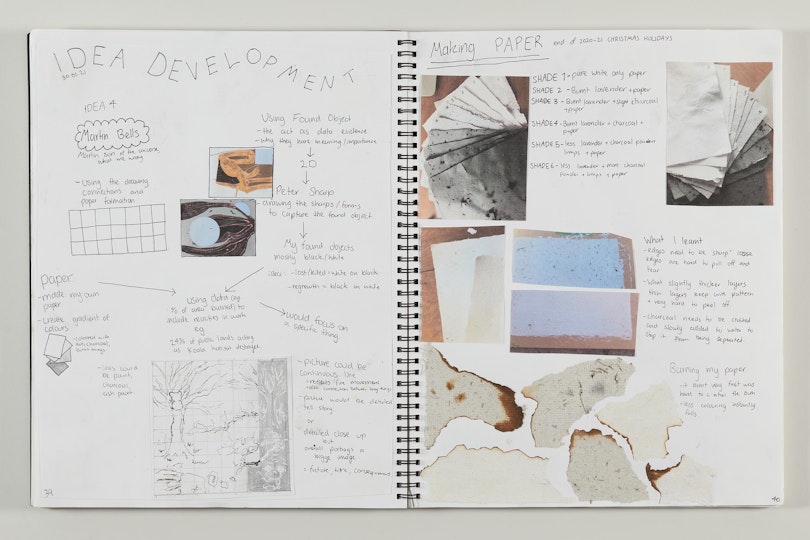 IDEA DEVELOPMENT
30.01.21
IDEA 4
Martin Bells
- Using the drawing
connections and
paper formation
Using Found Object
- the act as data evidence
- why they have meaning/importance
2D
Peter Sharp
drawing the sharps/forms
to capture the found object
My found objects
mostly black/white
- lost/killed = white on black
- regrowth = black on white
Paper
- making my own
paper
- create gradient of
colours
- inks could
be paint,
charcoal,
ash paint
Using data (eg
% of area burned) to
include realities in work
eg
of public lands acting
as Koala habitat destroyed
would focus on
a specific thing
- picture could be
continuous line
- picture would be detailed
tell story
or
detailed close up
but
overall portrays a
bigger image
= fracture, time, consequences
39
Making PAPER end of 2020-21 CHRISTMAS HOLIDAYS
SHADE 1 - pure white only paper
SHADE 2 - Burnt lavender + paper
SHADE 3 - Burnt lavender + slight charcoal
+ paper
SHADE 4 - Burnt lavender + charcoal +
paper
SHADE 5 - less lavender + charcoal powder
lumps + paper
SHADE 6 - less lavender + more charcoal
powder + lumps + paper
What I learnt
- edges need to be "sharp"
edges are hard to pull off and
tear
- What slightly thicker layers
thin layers keep wire pattern
+ very hard to peel off
- charcoal needs to be crushed
and slowly added to water to
stop it from being separated.
Burning my paper
- it burnt very fast was
hard to control the burn
- less colouring instantly
falls
40